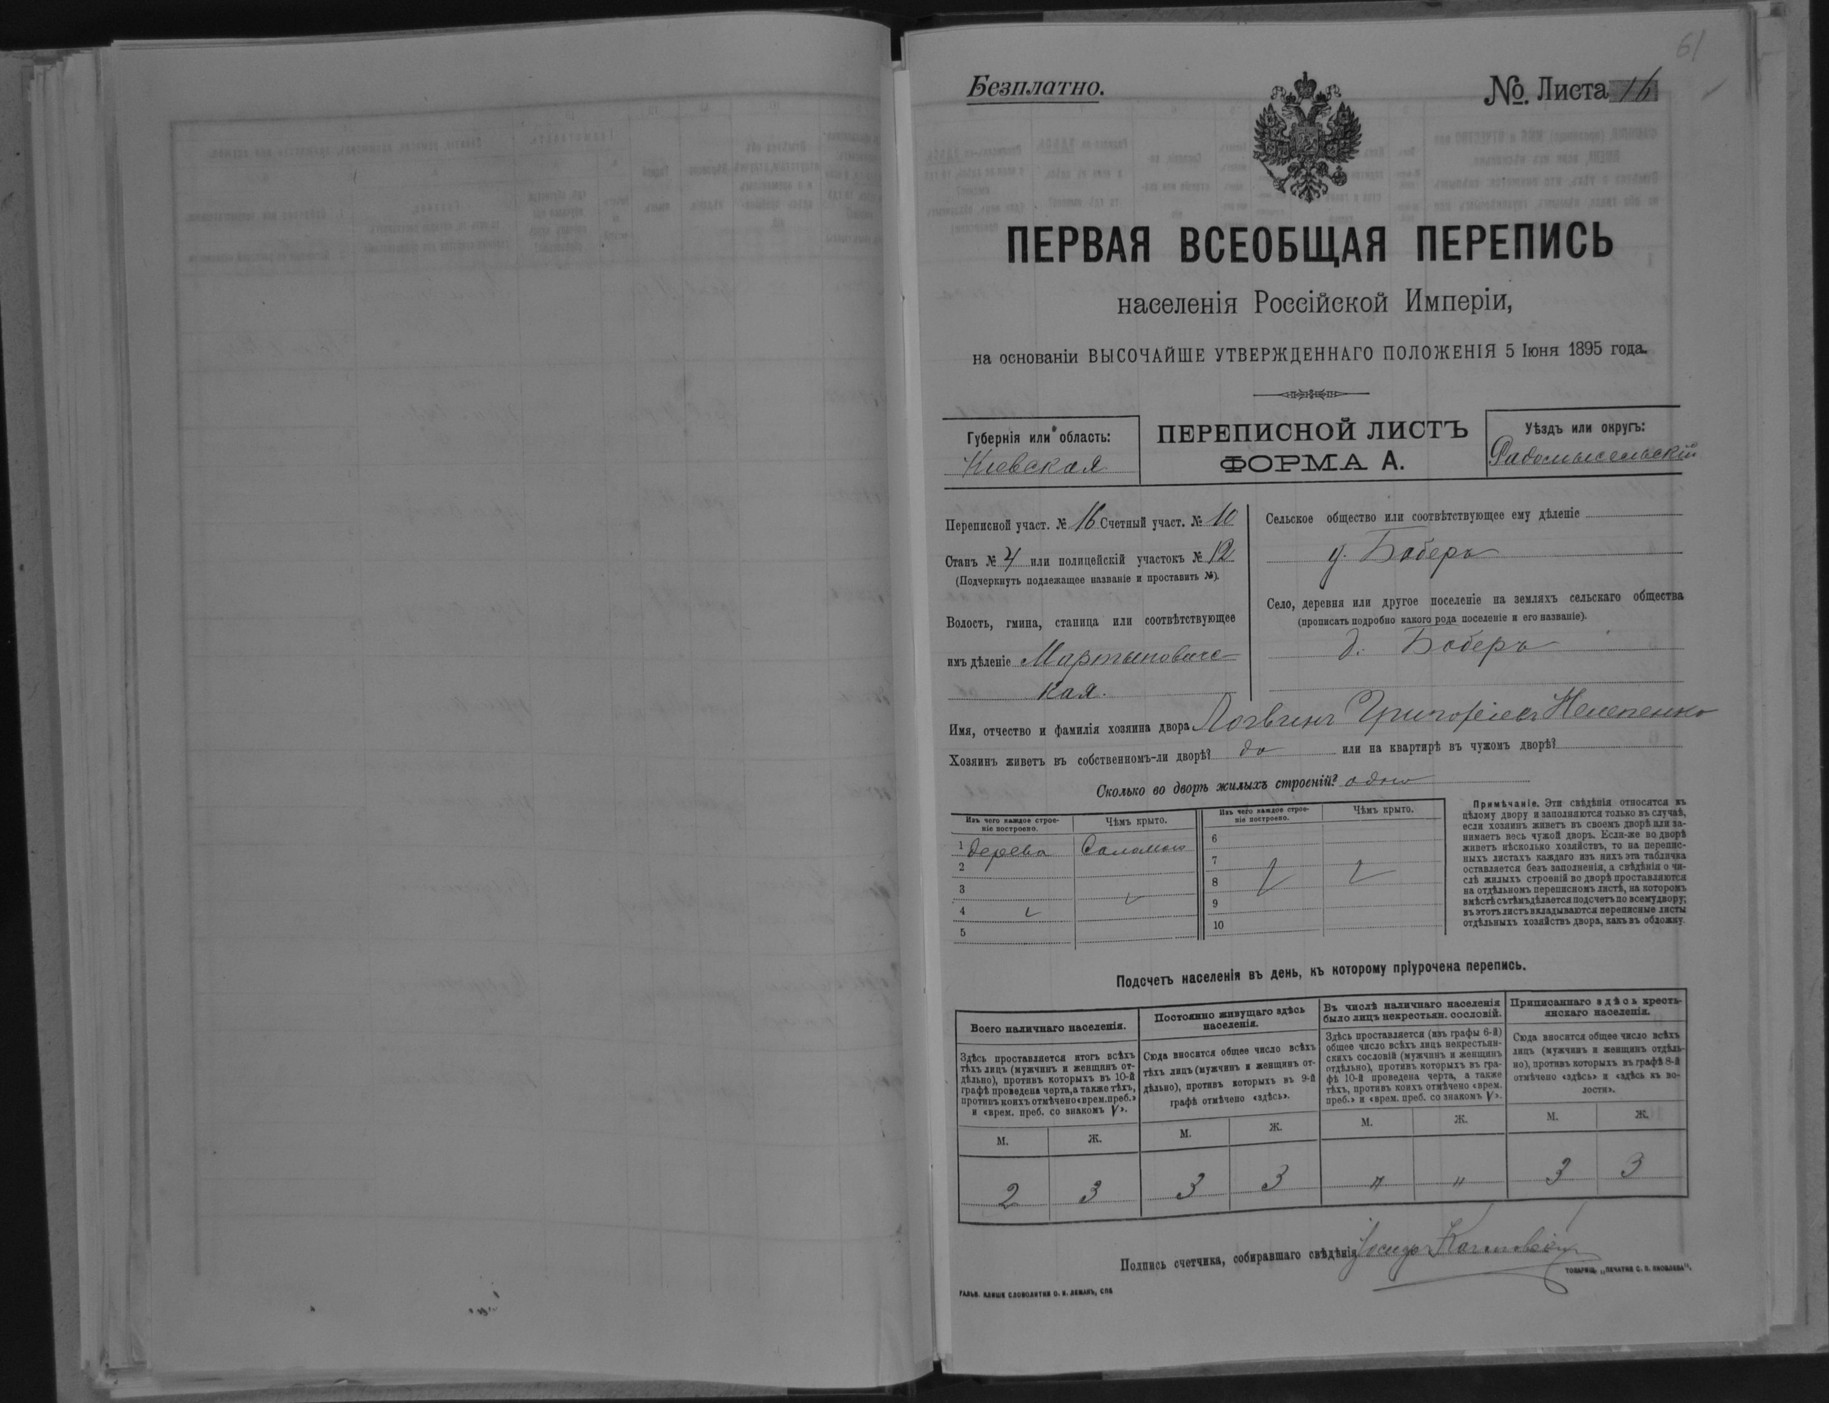 61
Безплатно.
№. Листа 16
ПЕРВАЯ ВСЕОБЩАЯ ПЕРЕПИСЬ
населенія Россійской Имперіи,
на основаніи ВЫСОЧАЙШЕ УТВЕРЖДЕННАГО ПОЛОЖЕНІЯ 5 Іюня 1895 года.
Губернія или область:
Кіевская
ПЕРЕПИСНОЙ ЛИСТЪ
ФОРМА А.
Уѣздъ или округъ:
Радомысельскій
Переписной участ. № 16 Счетный участ. № 10
Станъ № 4 или полицейскій участокъ № 12
(Подчеркнуть подлежащее названіе и проставить №).
Волость, гмина, станица или соотвѣтствующее
имъ дѣленіе Мартыновис-
кая.
Сельское общество или соотвѣтствующее ему дѣленіе
Боберъ
Село, деревня или другое поселеніе на земляхъ сельскаго общества
(прописать подробно какого рода поселеніе и его названіе).
д. Боберъ
Имя, отчество и фамилія хозяина двора Логвинъ Григоріевъ
Хозяинъ живетъ въ собственномъ-ли дворѣ? да или на квартирѣ въ чужомъ дворѣ?
Сколько во дворѣ жилыхъ строеній? одно
Изъ чего каждое строе-
ніе построено.
Чѣмъ крыто.
1 дерева Соломою
2
3
4
5
Изъ чего каждое строе-
ніе построено.
Чѣмъ крыто.
6
7
8
9
10
Примѣчаніе. Эти свѣдѣнія относятся къ
цѣлому двору и заполняются только въ случаѣ,
если хозяинъ живетъ въ своемъ дворѣ или за-
нимаетъ весь чужой дворъ. Если-же во дворѣ
живетъ нѣсколько хозяйствъ, то на перепис-
ныхъ листахъ каждаго изъ нихъ эта табличка
оставляется безъ заполненія, а свѣдѣнія о чи-
слѣ жилыхъ строеній во дворѣ проставляются
на отдѣльномъ переписномъ листѣ, на которомъ
вмѣстѣ съ тѣмъ дѣлается подсчетъ по всему двору;
въ этотъ листъ вкладываются переписные листы
отдѣльныхъ хозяйствъ двора, какъ въ обложку.
Подсчетъ населенія въ день, къ которому пріурочена перепись.
Всего наличнаго населенія.
Здѣсь проставляется итогъ всѣхъ
тѣхъ лицъ (мужчинъ и женщинъ от-
дѣльно), противъ которыхъ въ 10-й
графѣ проведена черта, а также тѣхъ,
противъ коихъ отмѣчено «врем. преб.»
и «врем. преб. со знакомъ V».
М. Ж.
2 3
Постоянно живущаго здѣсь
населенія.
Сюда вносится общее число всѣхъ
тѣхъ лицъ (мужчинъ и женщинъ от-
дѣльно), противъ которыхъ въ 9-й
графѣ отмѣчено «здѣсь».
М. Ж.
3 3
Въ числѣ наличнаго населенія
было лицъ некрестьян. сословій.
Здѣсь проставляется (изъ графы 6-й)
общее число всѣхъ лицъ некрестьян-
скихъ сословій (мужчинъ и женщинъ
отдѣльно), противъ которыхъ въ гра-
фѣ 10-й проведена черта, а также
тѣхъ, противъ коихъ отмѣчено «врем.
преб.» и «врем. преб. со знакомъ V».
М. Ж.
" "
Приписаннаго здѣсь кресть-
янскаго населенія.
Сюда вносится общее число всѣхъ
лицъ (мужчинъ и женщинъ отдѣль-
но), противъ которыхъ въ графѣ 8-й
отмѣчено «здѣсь» и «здѣсь къ во-
лости».
М. Ж.
3 3
Подпись счетчика, собиравшаго свѣдѣнія
ГАЛЬВ. КЛИШЕ СЛОВОЛИТНИ О. И. ЛЕМАНЪ, СПБ
ТОВАРИЩ. „ПЕЧАТНЯ С. П. ЯКОВЛЕВА".